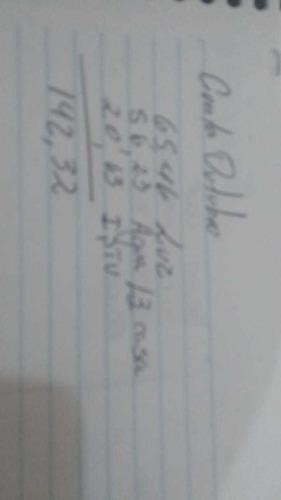 Conta Outubro
65,46 Luz
56,23 Agua /3 casa
20,63 IPTU
142,32